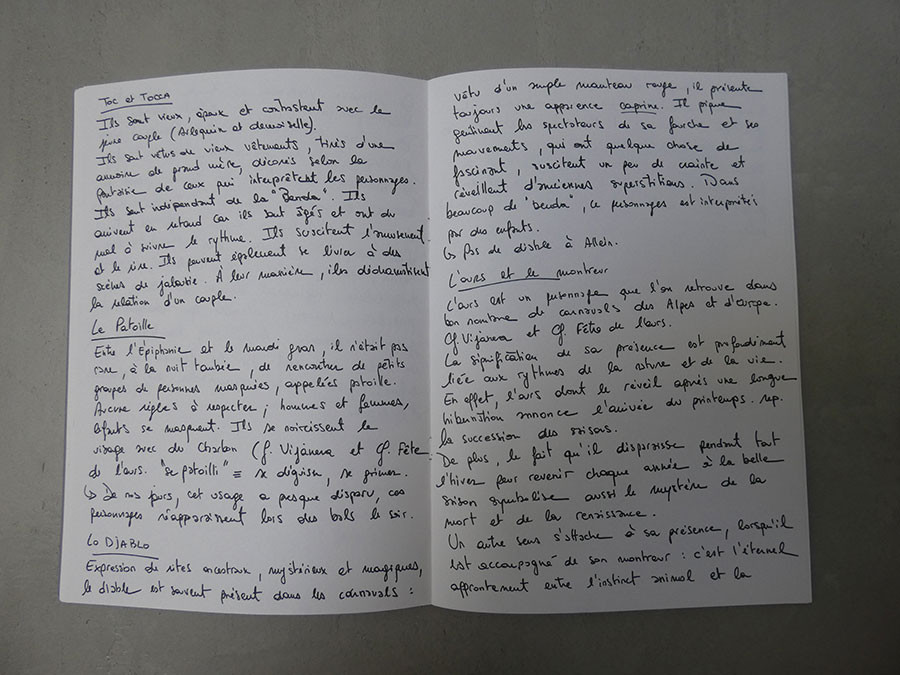 Toc et TOCCA
Ils sont vieux, époux et contrastent avec le
jeune couple (Arlequin et demoiselle).
Ils sont vêtus de vieux vêtements, tirés d'une
armoire de grand mère, décorés selon la
fantaisie de ceux qui interprètent les personnages.
Ils sont indépendant de la "Benda". Ils
arrivent en retard car ils sont âgés et ont du
mal à suivre le rythme. Ils suscitent l'amusement
et le rire. Ils peuvent également se livrer à des
scènes de jalousie. À leur manière, ils dédramatisent
la relation d'un couple.
Le Patoille
Entre l'Épiphanie et le mardi gras, il n'était pas
rare, à la nuit tombée, de rencontrer de petits
groupes de personnes masquées, appelées patoille.
Aucune règles à respecter ; hommes et femmes,
enfants se masquent. Ils se noircissent le
visage avec du Charbon (cf. Vijanera et cf. Fête
de l'ours. "se patoilli" = se déguiser, se grimer.
↳ De nos jours, cet usage a presque disparu, ces
personnages réapparaissent lors des bals le soir.
Lo DJABLO
Expression de rites ancestraux, mystérieux et magiques,
le diable est souvent présent dans les carnavals :
vêtu d'un simple manteau rouge, il présente
toujours une apparence caprine. Il pique
gentiment les spectateurs de sa fourche et ses
mouvements, qui ont quelque chose de
fascinant, suscitent un peu de crainte et
réveillent d'anciennes superstitions. Dans
beaucoup de "benda", ce personnages est interprétés
par des enfants.
↳ Pas de diable à Allein.
L'ours et le montreur
L'ours est un personnage que l'on retrouve dans
bon nombre de carnavals des Alpes et d'Europe.
Cf. Vijanera et cf. Fête de l'ours.
La signification de sa présence est profondément
liée aux rythmes de la nature et de la vie.
En effet, l'ours dont le réveil après une longue
hibernation annonce l'arrivée du printemps. rep.
la succession des saisons.
De plus, le fait qu'il disparaisse pendant tout
l'hiver pour revenir chaque année à la belle
saison symbolise aussi le mystère de la
mort et de la renaissance.
Un autre sens s'attache à sa présence, lorsqu'il
est accompagné de son montreur : c'est l'éternel
affrontement entre l'instinct animal et la